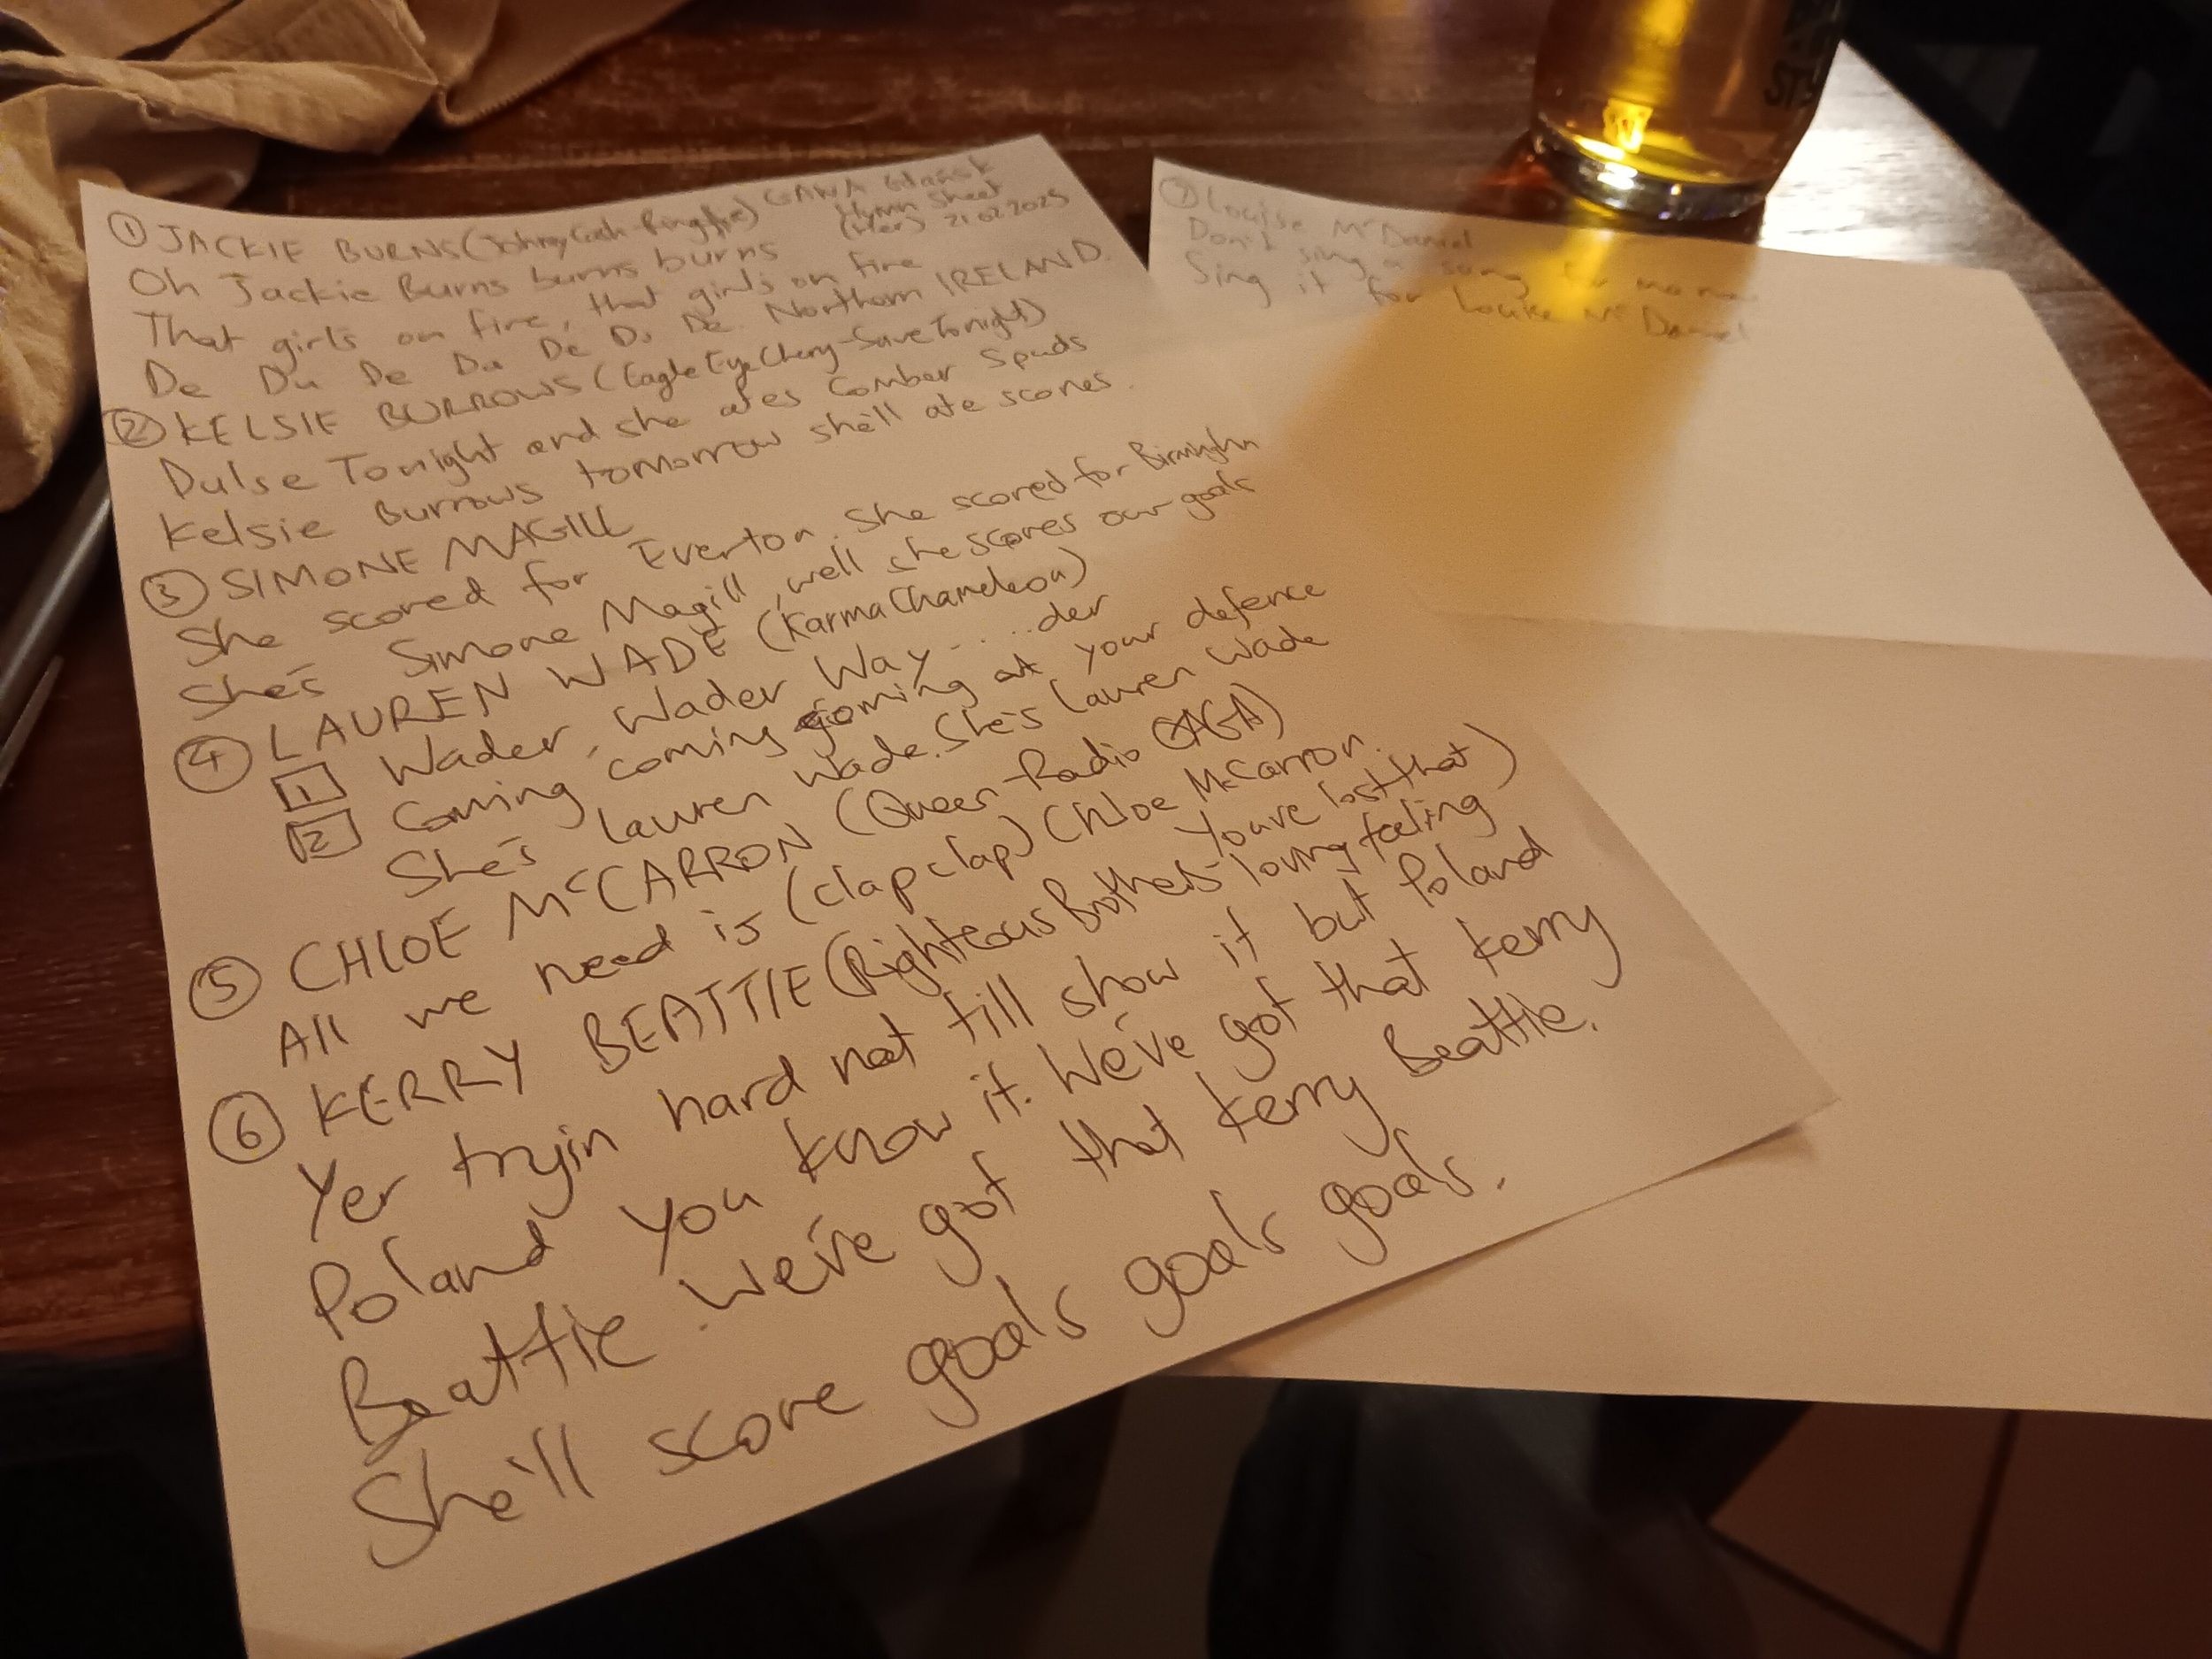 ① JACKIE BURNS (Johnny Cash - Ring Fire) GAWA Gdańsk
Hymn Sheet
(Her) 21.02.2025
Oh Jackie Burns burns burns
That girls on fire, that girls on fire
De Du De Da De Do De Northern IRELAND.
② KELSIE BURROWS (Eagle Eye Cherry - Save Tonight)
Dulse Tonight and she ates Comber Spuds
Kelsie Burrows tomorrow she'll ate scones.
③ SIMONE MAGILL
She scored for Everton. She scored for
She's Simone Magill, well she scores our goals
④ LAUREN WADE (Karma Chameleon)
1 Wader, Wader Way....der
2 Coming coming coming at your defence
She's Lauren Wade. She's Lauren Wade
⑤ CHLOE McCARRON (Queen - Radio GAGA)
All we need is (clap clap) Chloe McCarron.
⑥ KERRY BEATTIE (Righteous Brothers - You've lost that)
loving feeling
Yer tryin hard not till show it but Poland
Poland you know it. We've got that Kerry
Beattie. We've got that Kerry Beattie.
She'll score goals goals goals.
⑦ Louise McDaniel
Don't sing a song for me now
Sing it for Louise McDaniel
ST